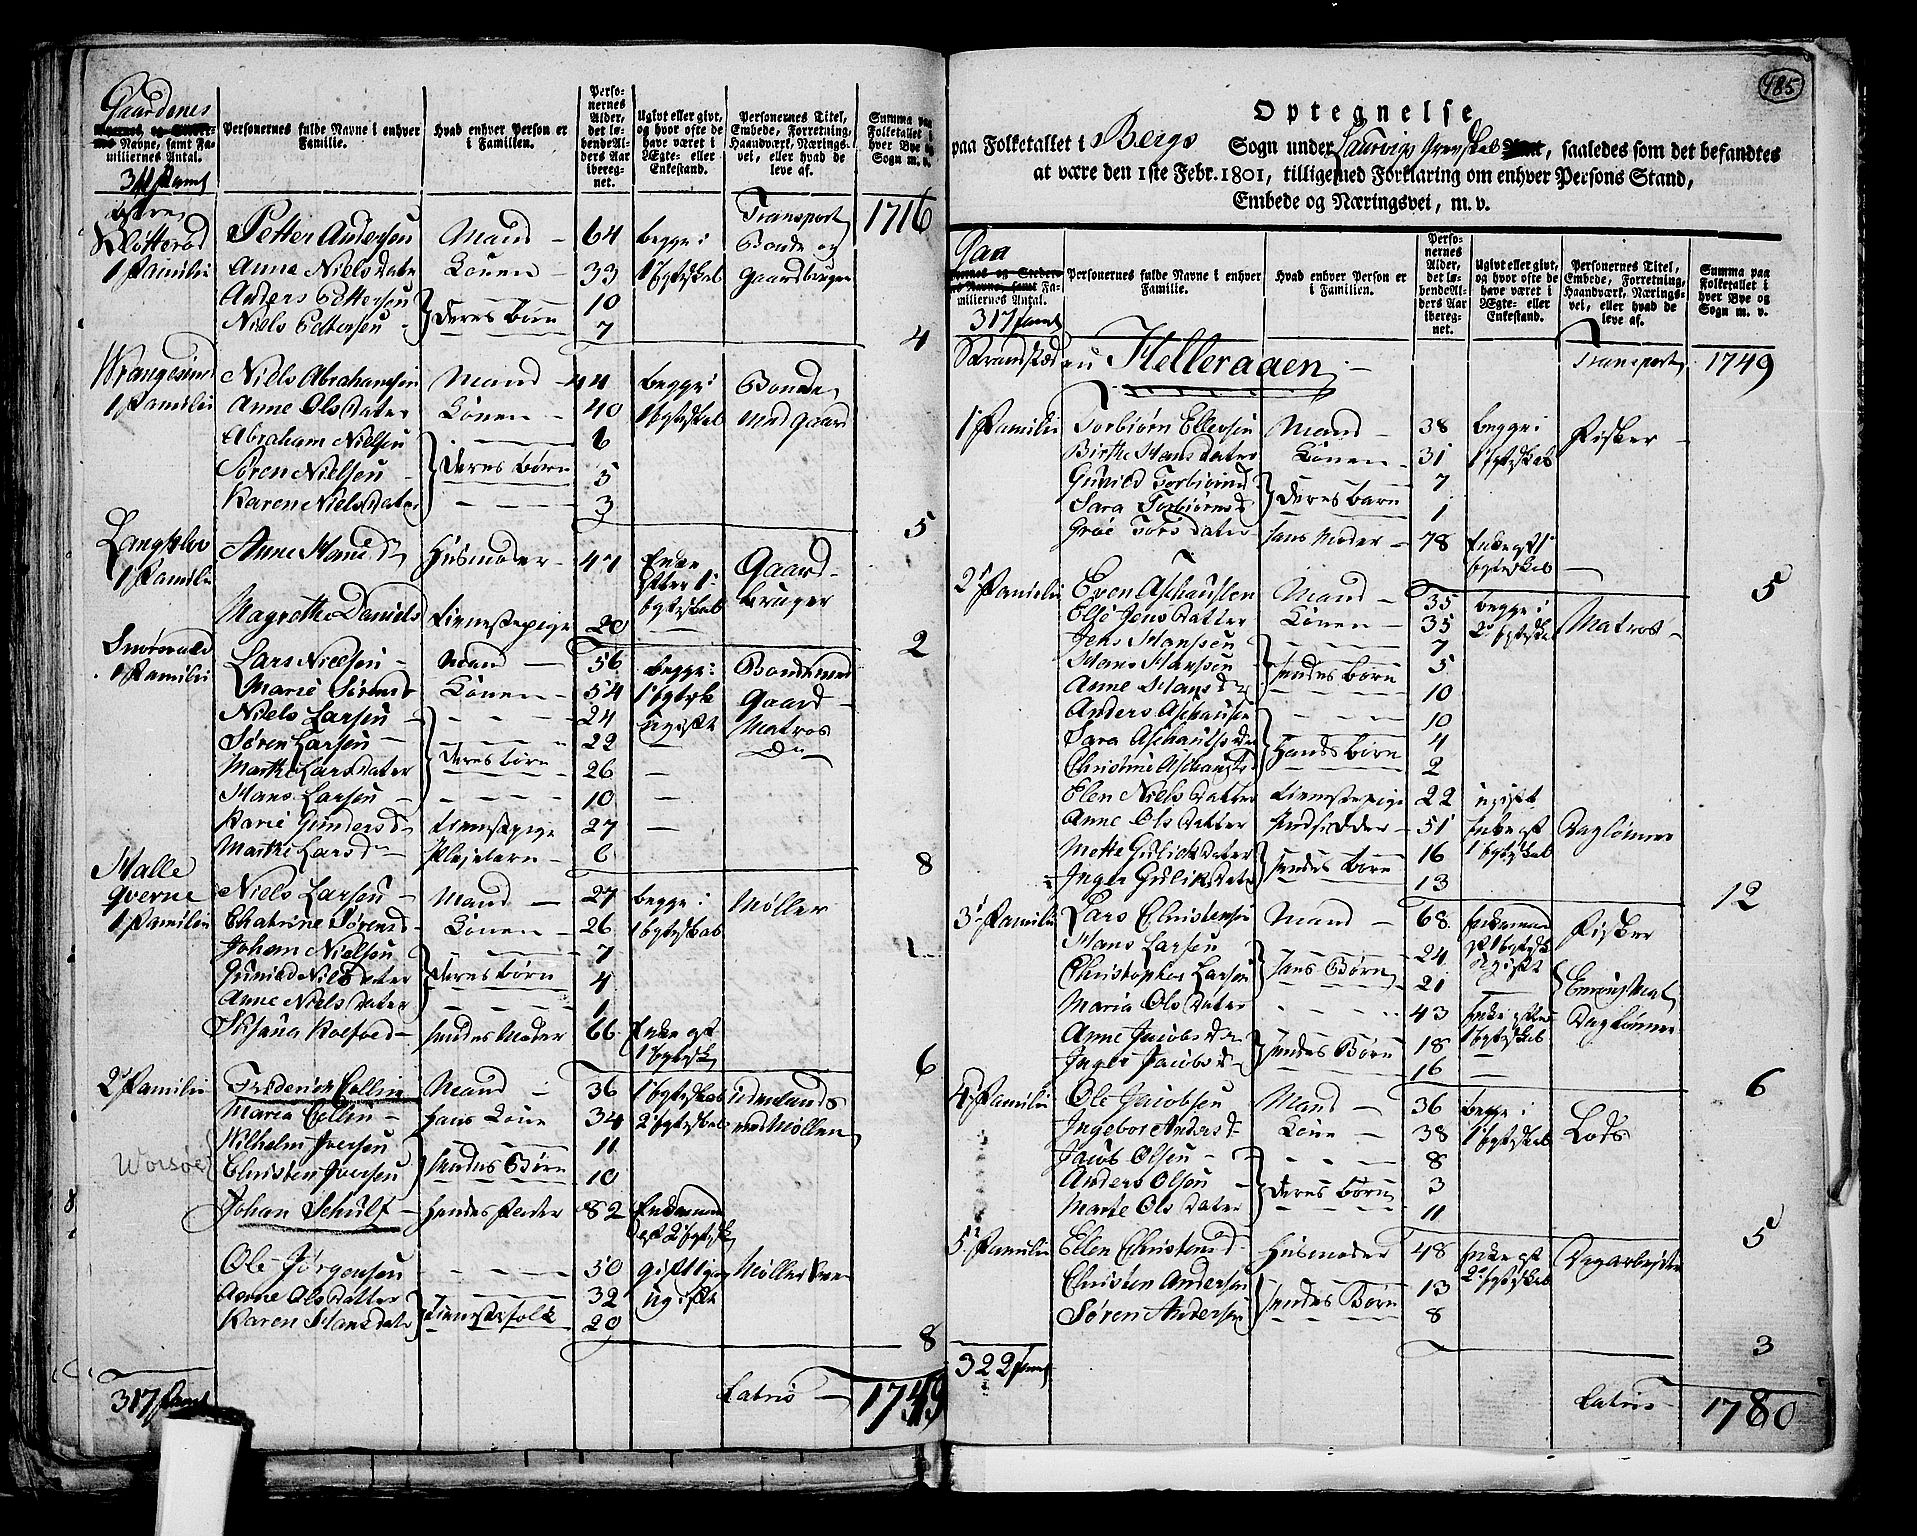 Gaardenes
Navne, samt Familiernes Antal.
Personernes fulde Navne i enhver Familie.
Hvad enhver Person er i Familien.
Personernes Alder, det løbende Alders Aar iberegnet.
Ugivt eller givt, og hvor ofte de have været i Ægte- eller Enkestand.
Personernes Titel, Embede, Forretning, Haandværk, Næringsvei, eller hvad de leve af.
Summa paa Folketallet i hver Bye og Sogn m. v.
Transport 1716
Kløfterød Petter Andersen Mand 64 begge i Bonde og
1 Familie Anne Niels Datter Konen 33 1 Egteskab Gaardbruger
Anders Pettersen 10
Niels Pettersen Deres Børn 7
4
Niels Abrahamsen Mand 44 begge i Bonde
1 Familie Anne Ols Datter Konen 40 1 Egteskab med Gaard
Abraham Nielsen 6
Søren Nielsen Deres Børn 5
Karen Niels Datter 3
5
Anne Hans D. Huusmoder 47 Enke Gaard-
1 Familie Efter 1 Egteskab bruger
Magrethe Daniels Tienestepige 20
2
Lars Nielsen Mand 56 begge i Bonde med
1 Familie Marie Sørens D. Konen 54 1 Egtesk Gaard
Niels Larsen 24 ugift Matros
Søren Larsen 22 Do
Marthe Lars Datter Deres Børn 26
Hans Larsen 10
Karie Gunders D. Tienestepige 27
Marthe Lars D. Plejebarn 6
8
Halle
Qverne Niels Larsen Mand 27 begge i Møller
1 Familie Chatrine Sørens D. Konen 26 1 Egteskab
Johan Nielsen 7
Gunild Niels Datter Deres Børn 4
Anne Niels Datter 1
hendes Moder 66 Enke eft 1 Egtesk
6
2 Familie Friderich Collin Mand 36 1 Egteskab
Maria Collin hans Kone 34 2 Egteskab med Møllen
Wilhelm Iversen 11
Worsøe Christen Iversen hendes Børn 10
Johan Schult hendes Fader 82 Enkemand eft 2 Egtesk
Ole Jørgensen 50 gift 1 gang
Anne Ols Datter 32 ugift
Karen Hans datr Tienestefolk 20
8
317 Famil Latris 1749
485
Optegnelse
paa Folketallet i Bergs Sogn under Laurvigs Grevskab, saaledes som det befandtes
at være den 1ste Febr. 1801, tilligemed Forklaring om enhver Persons Stand,
Embede og Næringsvei, m. v.
Paa
Navne, samt Familiernes Antal.
Personernes fulde Navne i enhver Familie.
Hvad enhver Person er i Familien.
Personernes Alder, det løbende Alders Aar iberegnet.
Ugivt eller givt, og hvor ofte de have været i Ægte- eller Enkestand.
Personernes Titel, Embede, Forretning, Haandværk, Næringsvei, eller hvad de leve af.
Summa paa Folketallet i hver Bye og Sogn m. v.
317 Famil
Strandstæden Helleraaen Transport 1749
1 Familie Torbiørn Ellevsen Mand 38 begge i Fisker
Birthe Hans Datter Konen 31 1 Egteskab
Gunild Torbiørns D 7
Sara Torbiørns D Deres børn 1
Groe Tors Datter hans Moder 78 Enke eft 1 Egteskab
5
2 Familie Even Aschaufsen Mand 35 begge i Matros
Else Jens Datter Konen 35 2 Egteskab
Jens Hansen 7
Hans Hansen hendes børn 5
Anne Hans D. 10
Anders Aschaufsen 10
Sara Aschaufs D. Hands børn 4
Christine Aschaufs D. 2
Elen Niels Datter Tienestepige 22 ugift
Anne Ols Datter 51 Enke eft Daglønner
Mette Gulichs Dater 16 1 Egteskab
Inger Guliks Dater hendes børn 13
12
3 Familie Lars Christensen Mand 68 Enkemand Fisker
Hans Larsen 24 eft 1 Egtesk
Christopher Larsen hans Børn 21 ugift
Maria Ols Dater 43 Enke efter Daglønner
Anne Jacobs D. 18 1 Egteskab
Inger Jacobs D. hendes Børn 16
6
4 Familie Ole Jacobsen Mand 36 begge i Lods
Ingebor Anders D. Kone 38 1 Egteskab
Jacob Olsen 8
Anders Olsen Deres børn 3
Marte Ols Dater 11
5
5 Familie Ellen Christens D. Huusmoder 48 Enke eft Dagarbejder
Christen Andersen 13 2 Egteskab
Søren Andersen hendes Børn 8
3
322 Famil Latris 1780